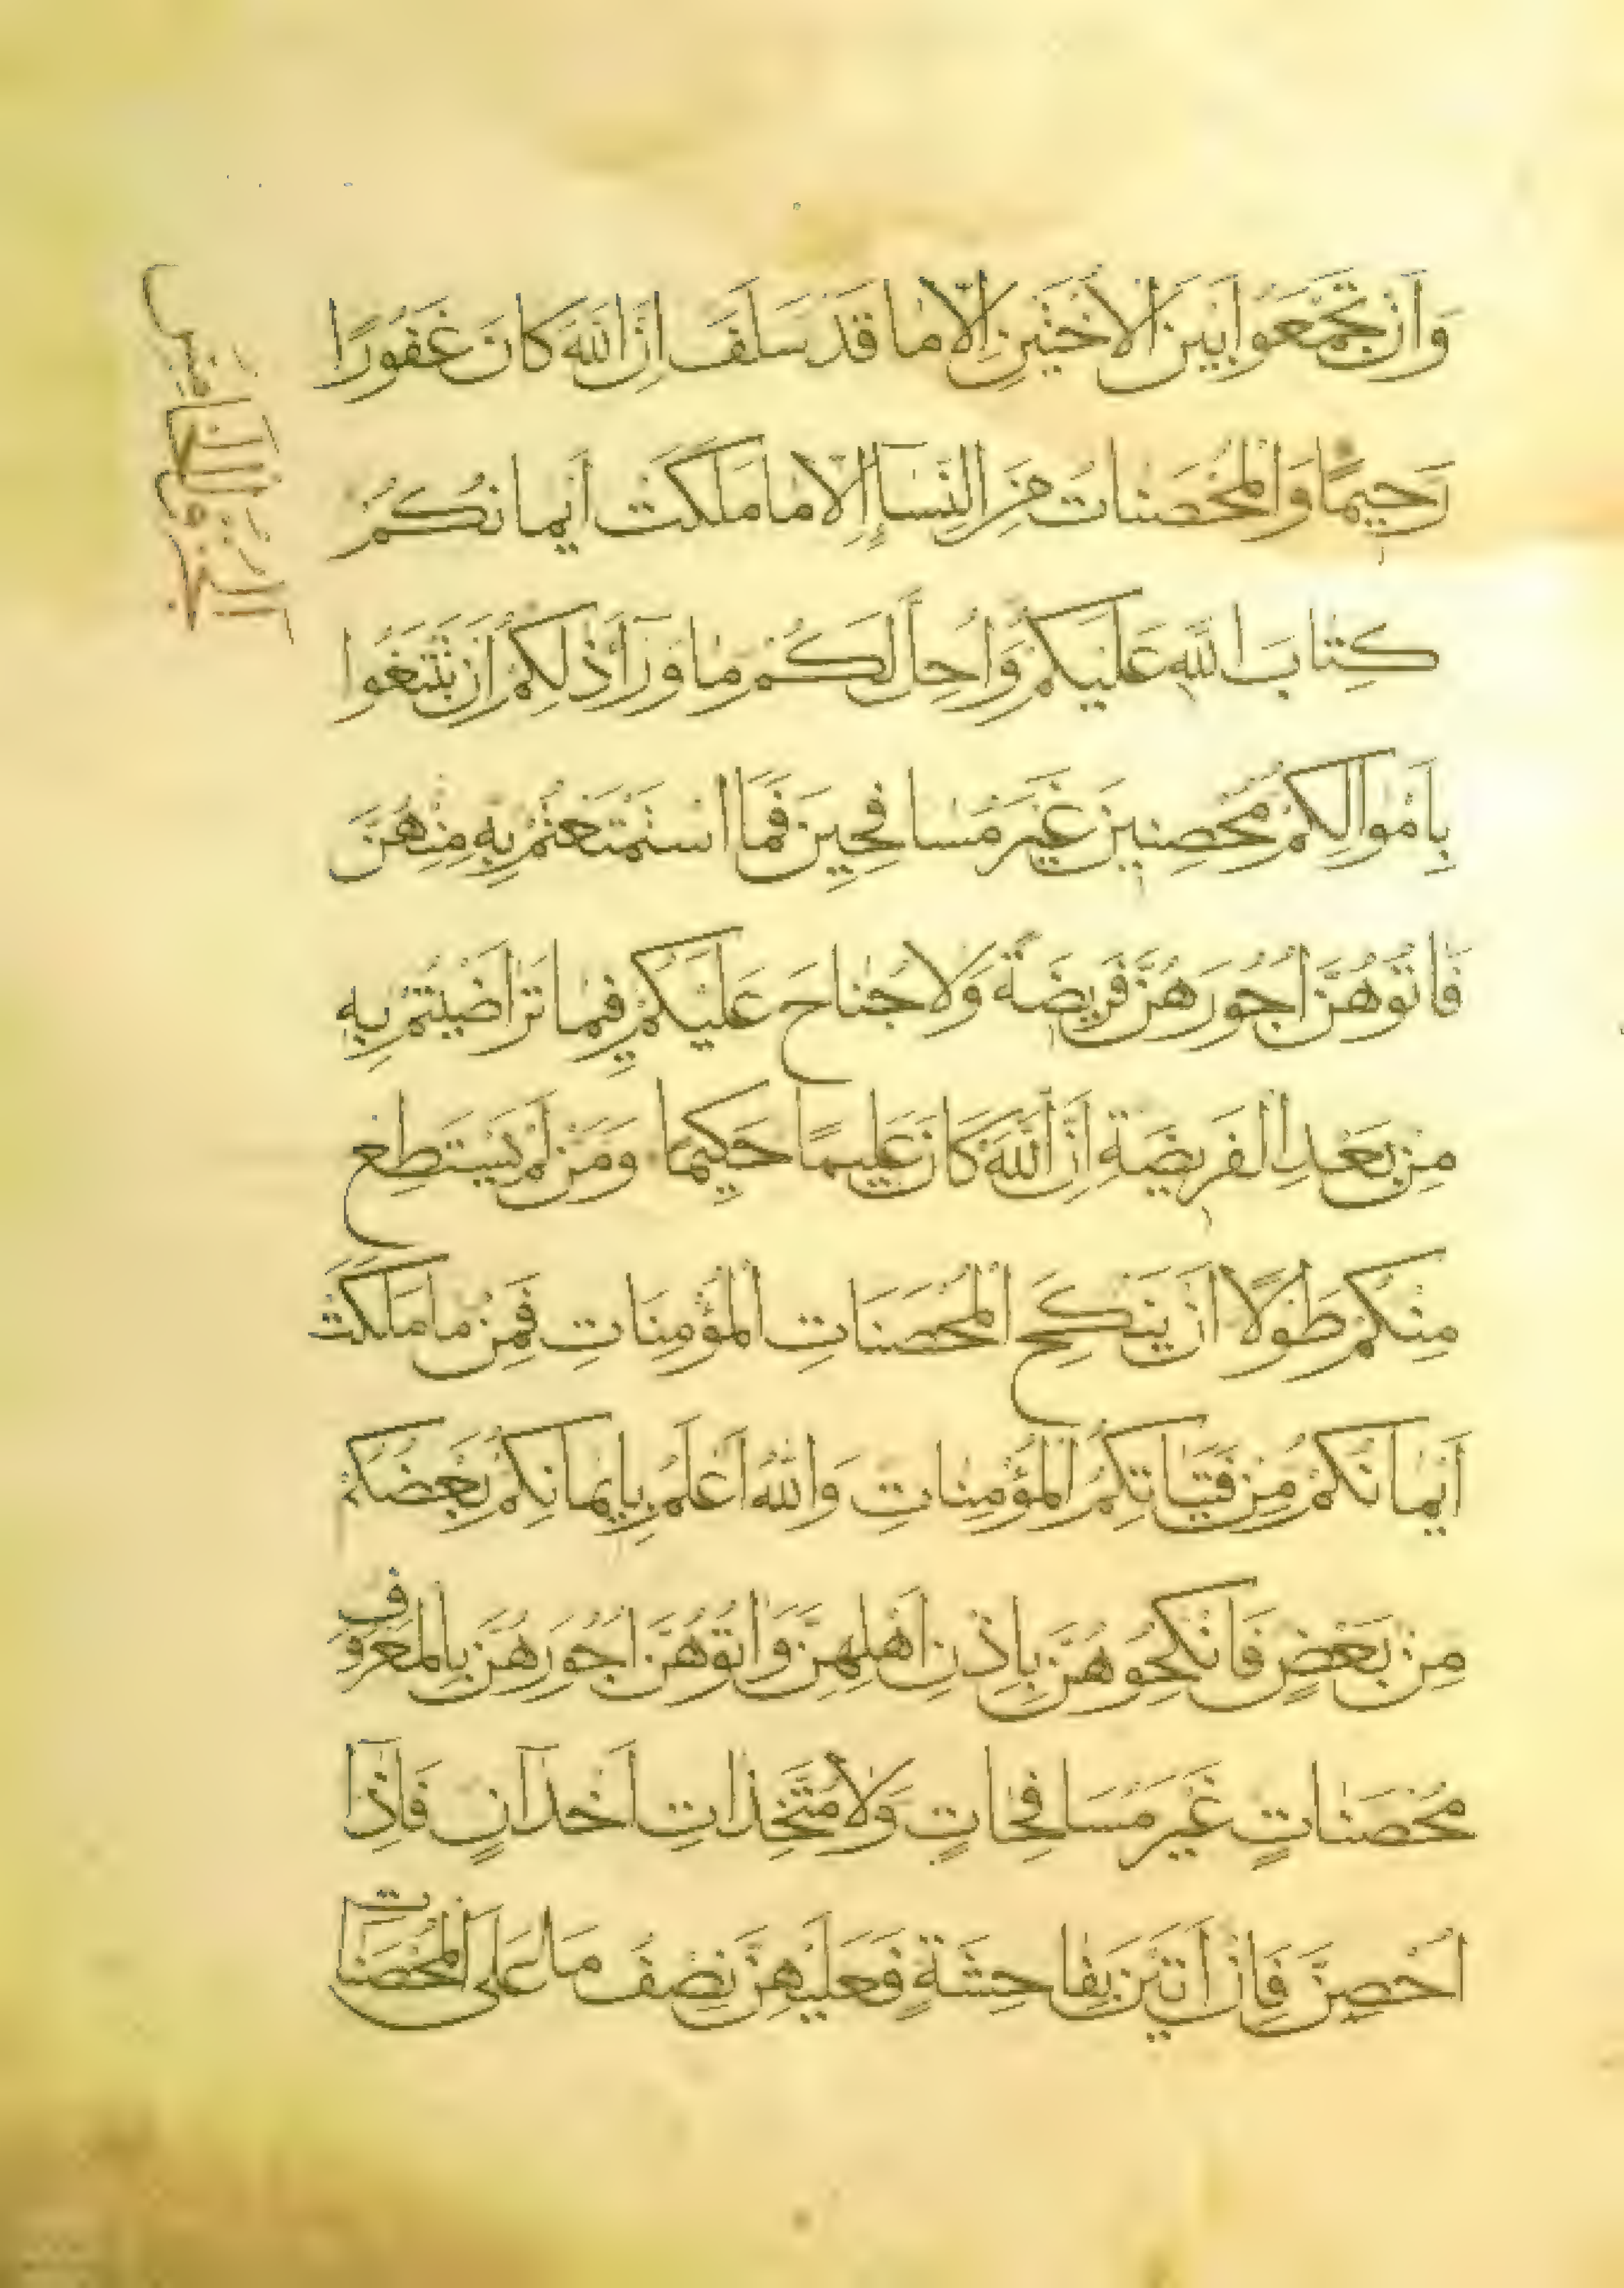 وَاَنْ تَجْمَعُوا بَيْنَ الْاُخْتَيْنِ اِلَّا مَا قَدْ سَلَفَ اِنَّ اللّٰهَ كَانَ غَفُورًا
رَحِيمًا وَالْمُحْصَنَاتُ مِنَ النِّسَآءِ اِلَّا مَا مَلَكَتْ اَيْمَانُكُمْ
كِتَابَ اللّٰهِ عَلَيْكُمْ وَاُحِلَّ لَكُمْ مَا وَرَآءَ ذٰلِكُمْ اَنْ تَبْتَغُوا
بِاَمْوَالِكُمْ مُحْصِنِينَ غَيْرَ مُسَافِحِينَ فَمَا اسْتَمْتَعْتُمْ بِهِ مِنْهُنَّ
فَاٰتُوهُنَّ اُجُورَهُنَّ فَرِيضَةً وَلَا جُنَاحَ عَلَيْكُمْ فِيمَا تَرَاضَيْتُمْ بِهِ
مِنْ بَعْدِ الْفَرِيضَةِ اِنَّ اللّٰهَ كَانَ عَلِيمًا حَكِيمًا وَمَنْ لَمْ يَسْتَطِعْ
مِنْكُمْ طَوْلًا اَنْ يَنْكِحَ الْمُحْصَنَاتِ الْمُؤْمِنَاتِ فَمِنْ مَا مَلَكَتْ
اَيْمَانُكُمْ مِنْ فَتَيَاتِكُمُ الْمُؤْمِنَاتِ وَاللّٰهُ اَعْلَمُ بِاِيمَانِكُمْ بَعْضُكُمْ
مِنْ بَعْضٍ فَانْكِحُوهُنَّ بِاِذْنِ اَهْلِهِنَّ وَاٰتُوهُنَّ اُجُورَهُنَّ بِالْمَعْرُوفِ
مُحْصَنَاتٍ غَيْرَ مُسَافِحَاتٍ وَلَا مُتَّخِذَاتِ اَخْدَانٍ فَاِذَا
اُحْصِنَّ فَاِنْ اَتَيْنَ بِفَاحِشَةٍ فَعَلَيْهِنَّ نِصْفُ مَا عَلَى الْمُحْصَنَاتِ